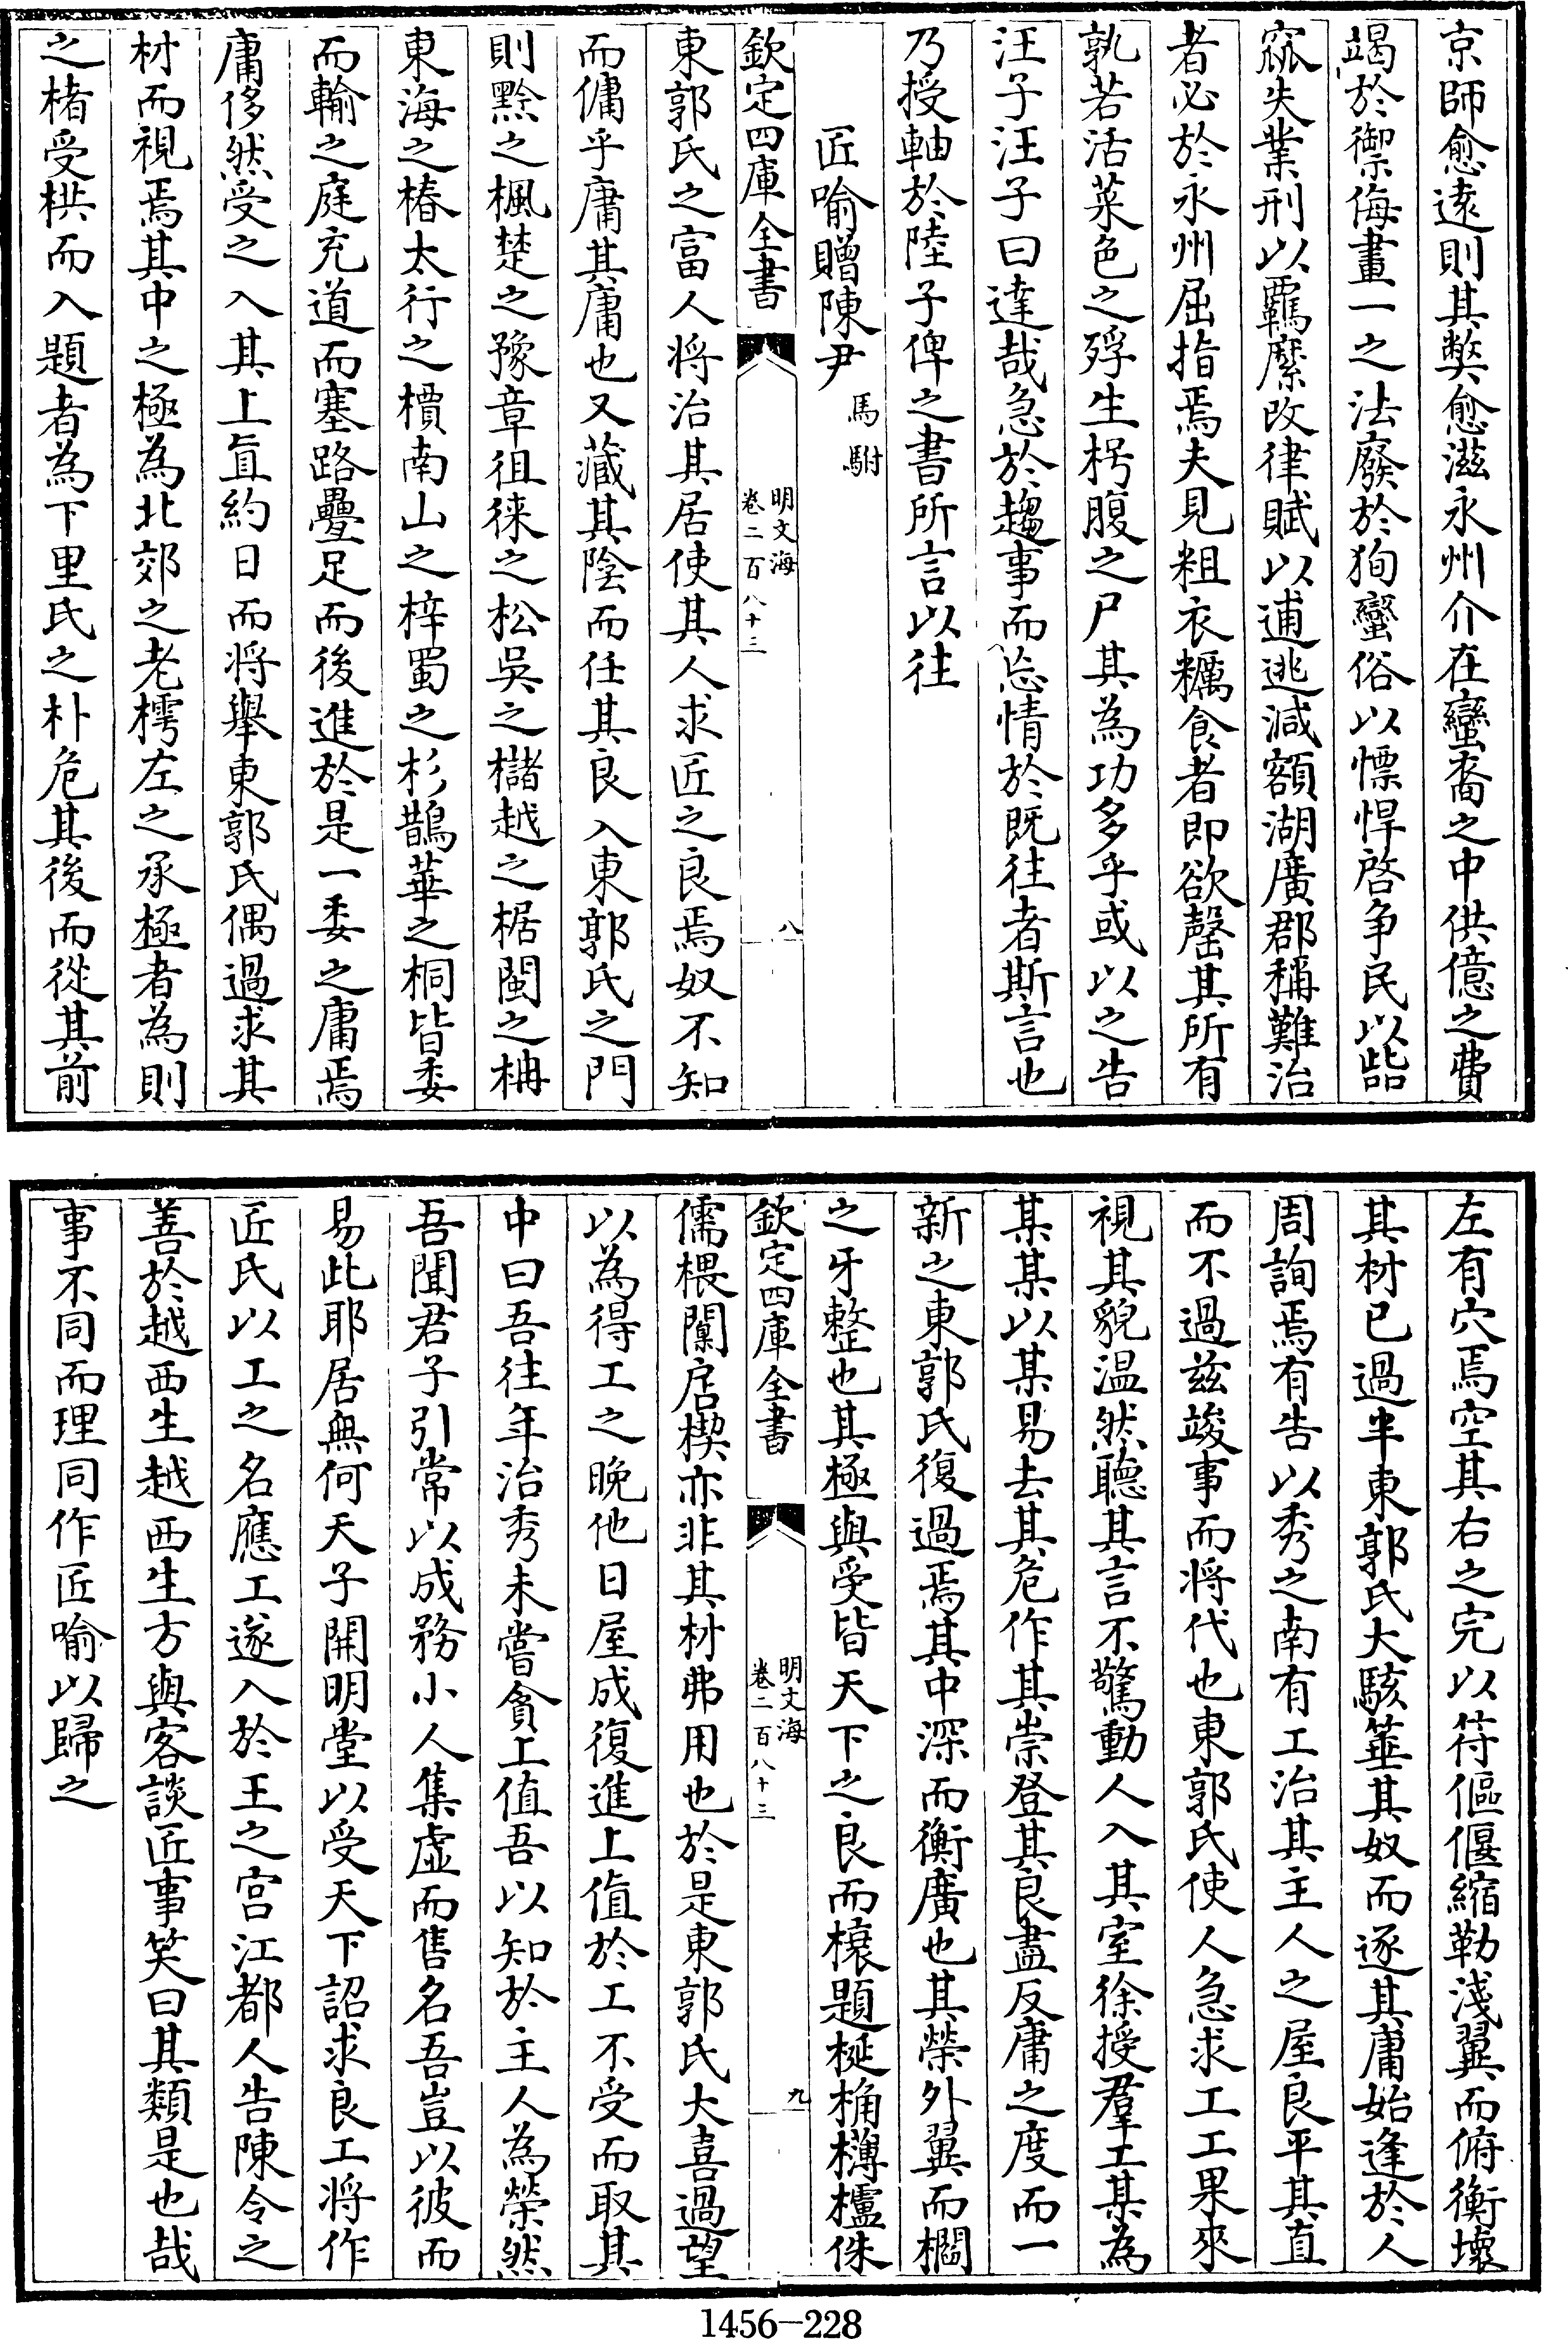 京師愈遠則其弊愈滋永州介在蠻裔之中供億之費
竭於禦侮畫一之法廢於狥蠻俗以慓悍啓争民以呰
窳失業刑以羈縻改律賦以逋逃減額湖廣郡稱難治
者必於永州屈指焉夫見粗衣糲食者即欲罄其所有
孰若活菜色之殍生枵腹之尸其為功多乎或以之告
汪子汪子曰達哉急於趨事而忘情於既往者斯言也
乃授軸於陸子俾之書所言以往
匠喻贈陳尹 馬駙
欽定四庫全書 明文海 卷二百八十三 八
東郭氏之富人将治其居使其人求匠之良焉奴不知
而傭乎庸其庸也又藏其陰而任其良入東郭氏之門
則黔之楓楚之豫章徂徠之松吳之櫧越之椐閩之柟
東海之椿太行之檟南山之梓蜀之杉鵲華之桐皆委
而輸之庭充道而塞路疊足而後進於是一委之庸焉
庸侈然受之入其上直約日而将舉東郭氏偶過求其
材而視焉其中之極為北郊之老樗左之承極者為則
之楮受栱而入題者為下里氏之朴危其後而從其前
左有穴焉空其右之完以符傴偃縮勒淺翼而俯衡壊
其材已過半東郭氏大駭箠其奴而逐其庸始逢於人
周詢焉有告以秀之南有工治其主人之屋良平其直
而不過兹竣事而将代也東郭氏使人急求工工果來
視其貌温然聽其言不驚動人入其室徐授羣工某為
某某以某易去其危作其崇登其良盡反庸之度而一
新之東郭氏復過焉其中深而衡廣也其榮外翼而櫩
之牙整也其極與受皆天下之良而榱題梴桷欂櫨侏
欽定四庫全書 明文海 卷二百八十三 九
儒椳闑扂楔亦非其材弗用也於是東郭氏大喜過望
以為得工之晚他日屋成復進上值於工不受而取其
中曰吾往年治秀未嘗貪上值吾以知於主人為榮然
吾聞君子引常以成務小人集虛而售名吾豈以彼而
易此耶居無何天子開明堂以受天下詔求良工将作
匠氏以工之名應工遂入於王之宫江都人告陳令之
善於越西生越西生方與客談匠事笑曰其類是也哉
事不同而理同作匠喻以歸之
1456-228